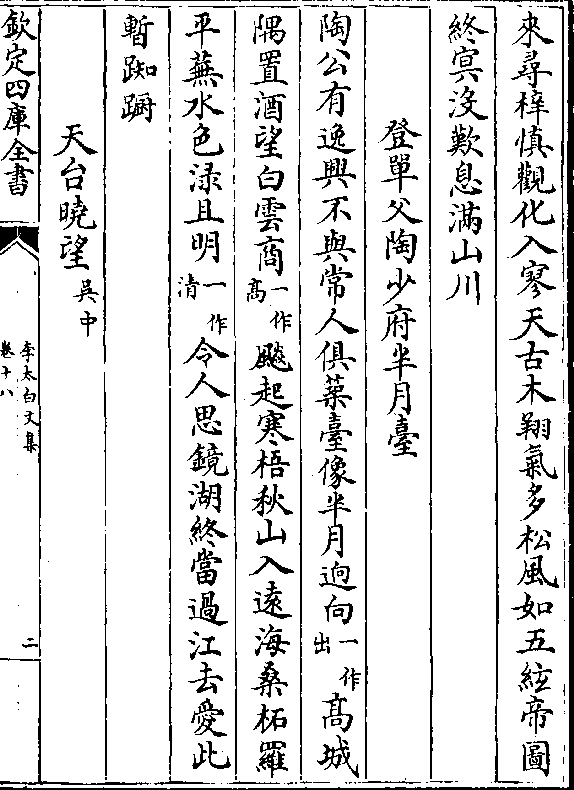 來尋梓慎觀化入寥天古木翔氣多松風如五絃帝圖
終冥没歎息滿山川
登單父陶少府半月臺
陶公有逸興不與常人俱築臺像半月逈向一作出髙城
隅置酒望白雲商一作髙飈起寒梧秋山入遠海桑柘羅
平蕪水色渌且明一作清令人思鏡湖終當過江去愛此
暫踟蹰
天台曉望吳中
欽定四庫全書
李太白文集
卷十八
二